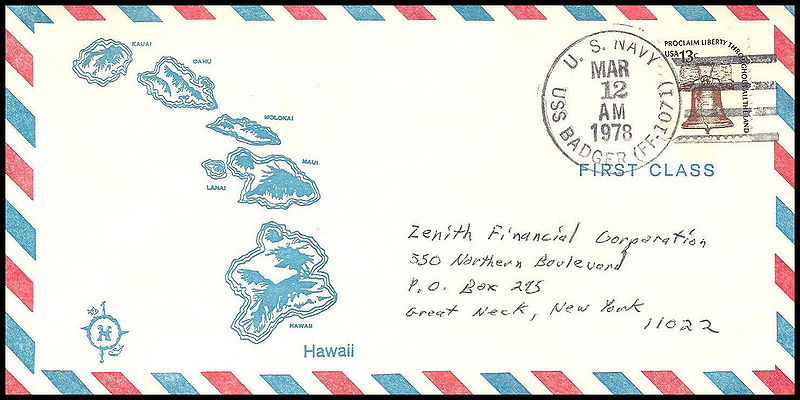 KAUAI
OAHU
MOLOKAI
MAUI
LANAI
HAWAII
Hawaii
H
U. S. NAVY
MAR
12
AM
1978
USS BADGER (FF-1071)
PROCLAIM LIBERTY THROUGHOUT ALL THE LAND
USA 13c
FIRST CLASS
Zenith Financial Corporation
550 Northern Boulevard
P.O. Box 295
Great Neck, New York
11022